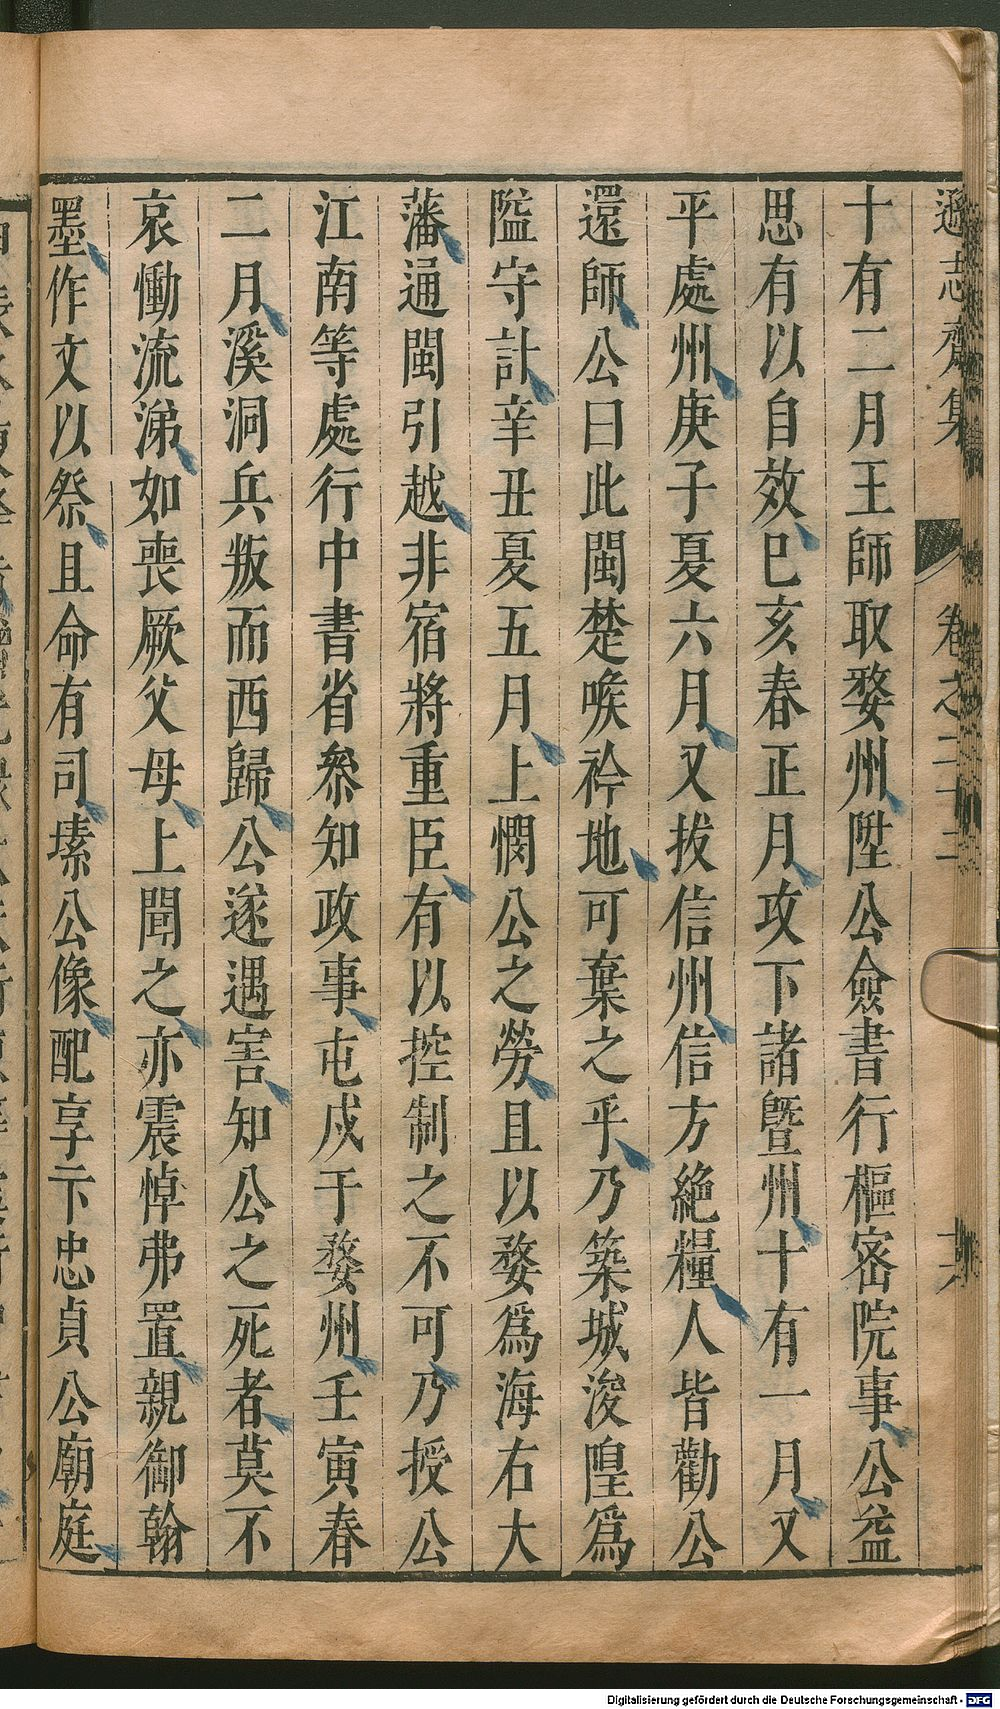 遜志齋集 卷之二十二
十有二月王師取婺州陞公僉書行樞密院事公益
思有以自效巳亥春正月攻下諸曁州十有一月又
平處州庚子夏六月又拔信州信方絶糧人皆勸公
還師公曰此閩楚喉衿地可棄之乎乃築城浚隍爲
隘守計辛丑夏五月上憫公之勞且以婺爲海右大
藩通閩引越非宿將重臣有以控制之不可乃授公
江南等處行中書省叅知政事屯戍于婺州壬寅春
二月溪洞兵叛而西歸公遂遇害知公之死者莫不
哀慟流涕如喪厥父母上聞之亦震悼弗置親御翰
墨作文以祭且命有司塐公像配享卞忠貞公廟庭
Digitalisierung gefördert durch die Deutsche Forschungsgemeinschaft - DFG